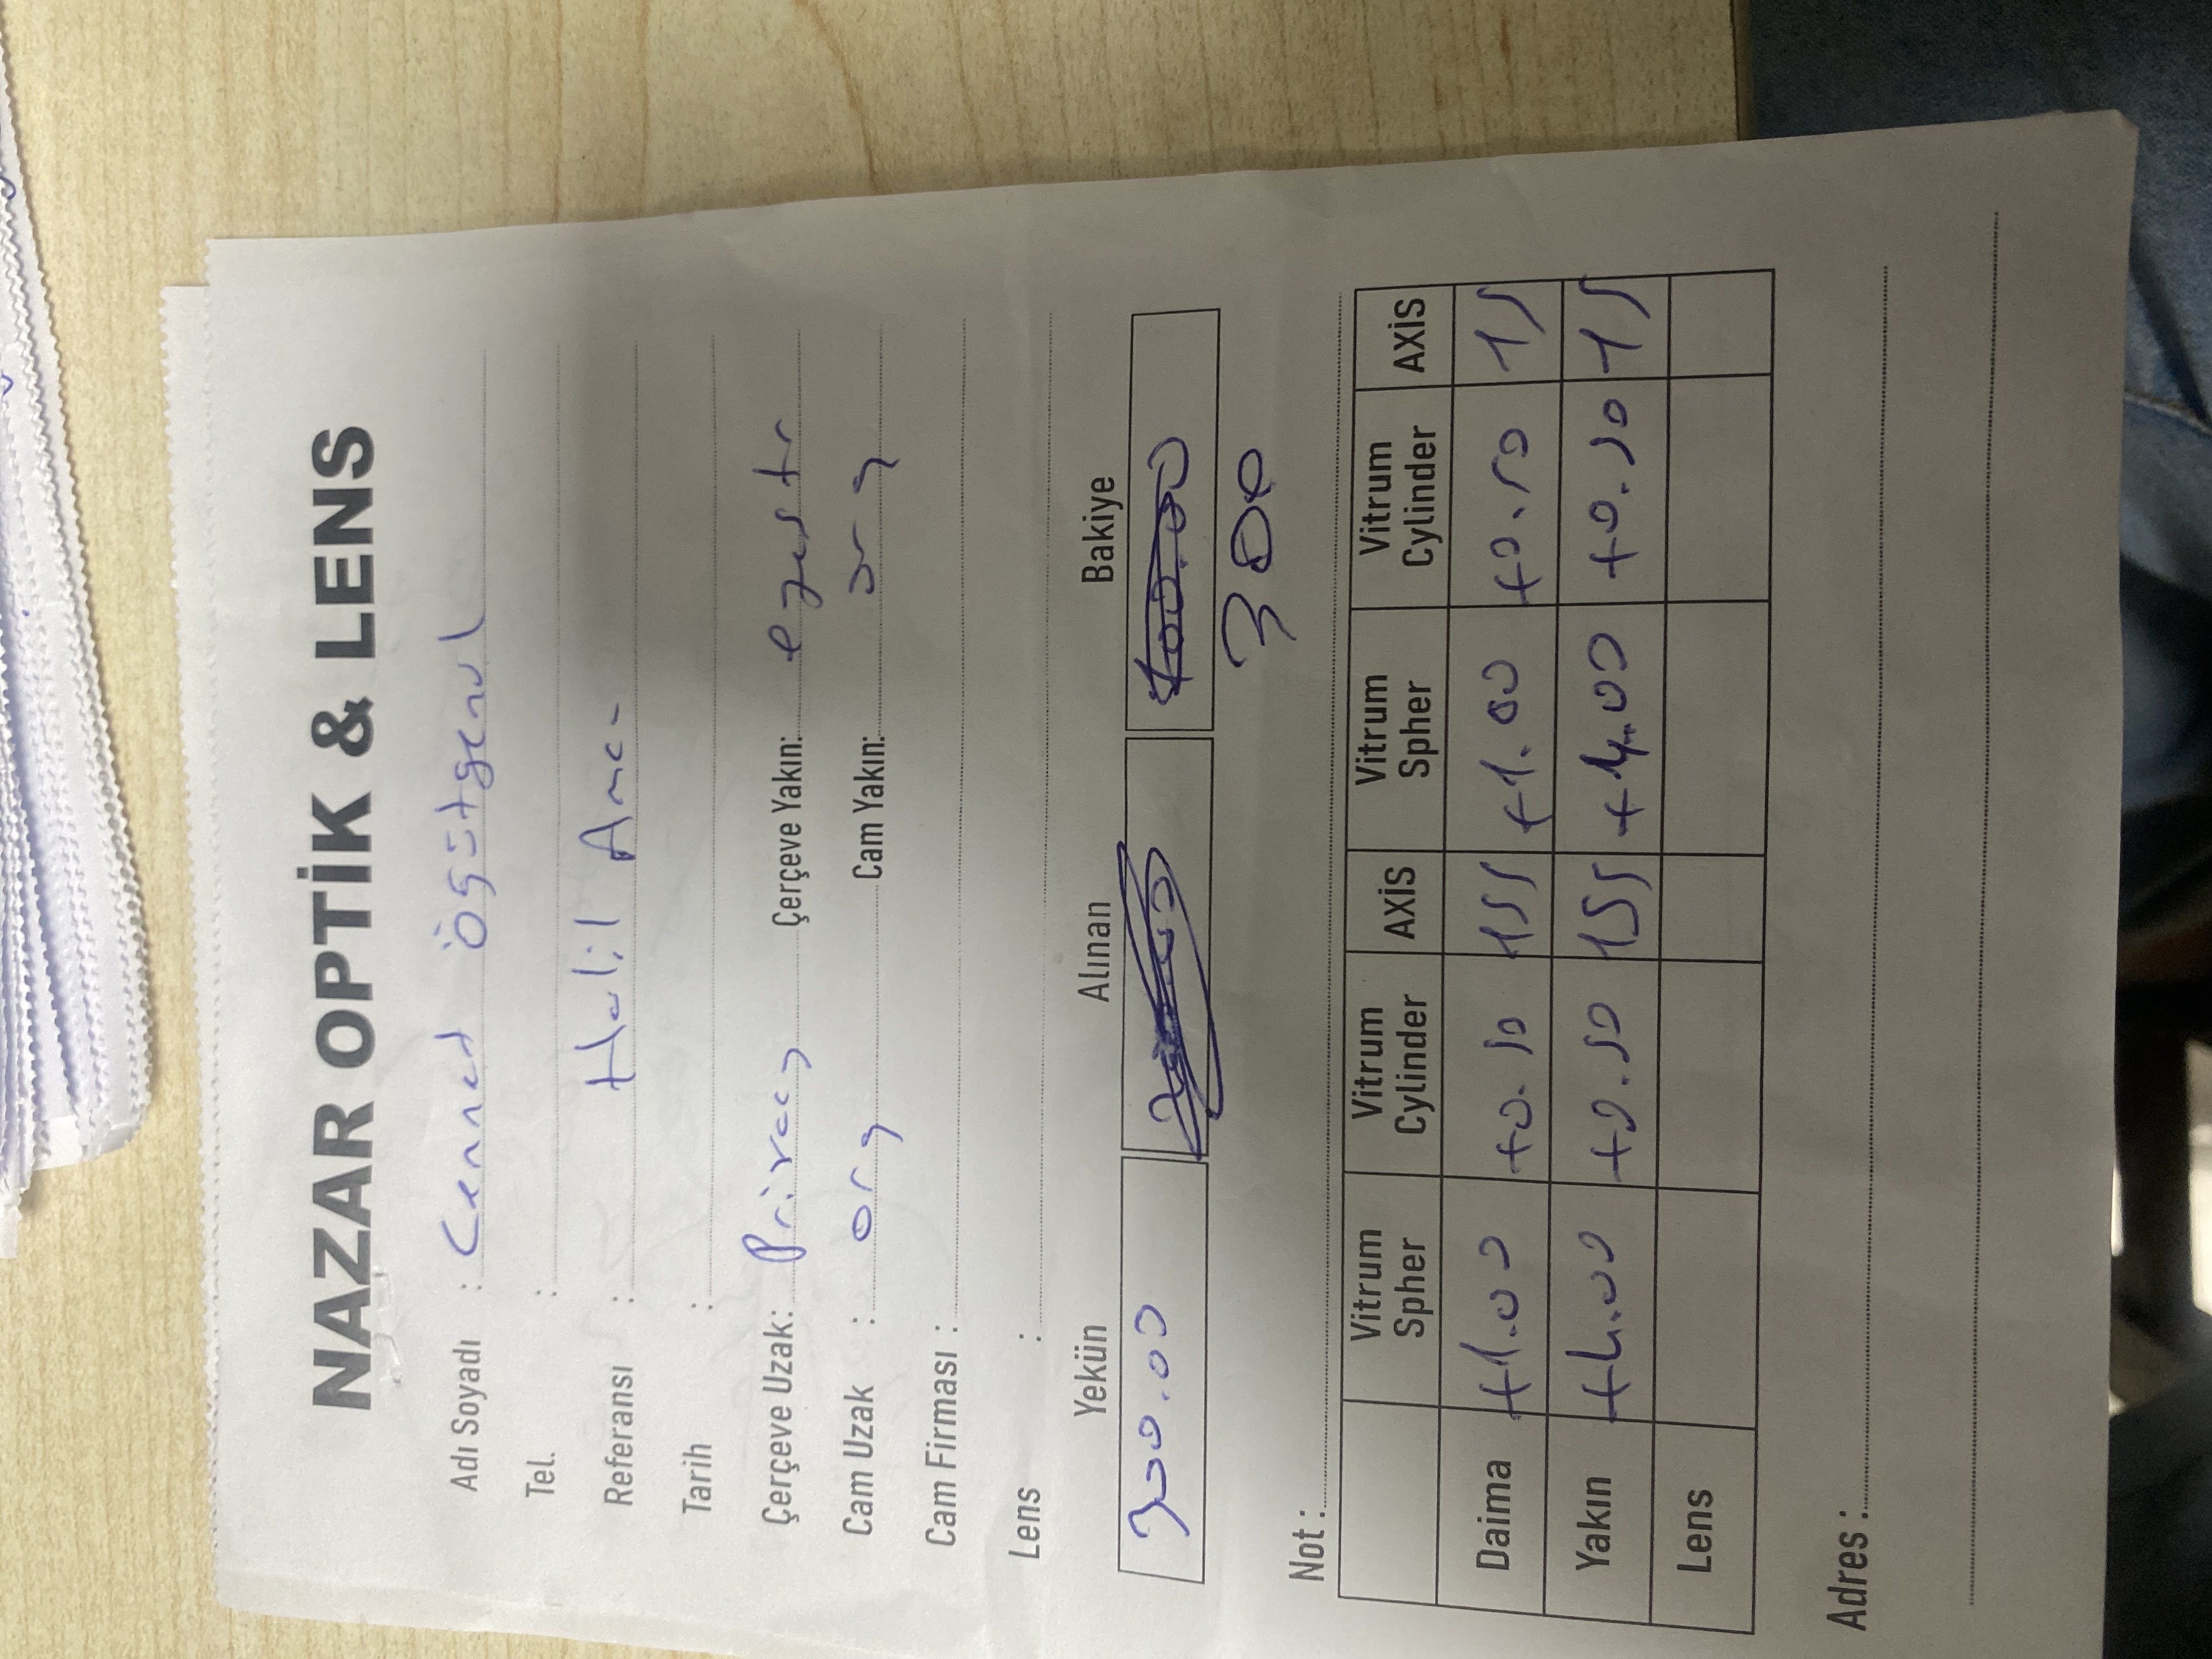 NAZAR OPTİK & LENS
Adı Soyadı : Cennet Öğütgenul
Tel. :
Referansı : Halil Amca
Tarih :
Çerçeve Uzak: Privacy Çerçeve Yakın:
Cam Uzak : org Cam Yakın: org
Cam Firması :
Lens :
Yekün Alınan Bakiye
300.00 100.00
300
Not :
Vitrum Spher Vitrum Cylinder AXİS Vitrum Spher Vitrum Cylinder AXİS
Daima +1.00 +0.50 155 +1.00 +0.50 15
Yakın +4.00 +0.50 155 +4.00 +0.50 15
Lens
Adres :